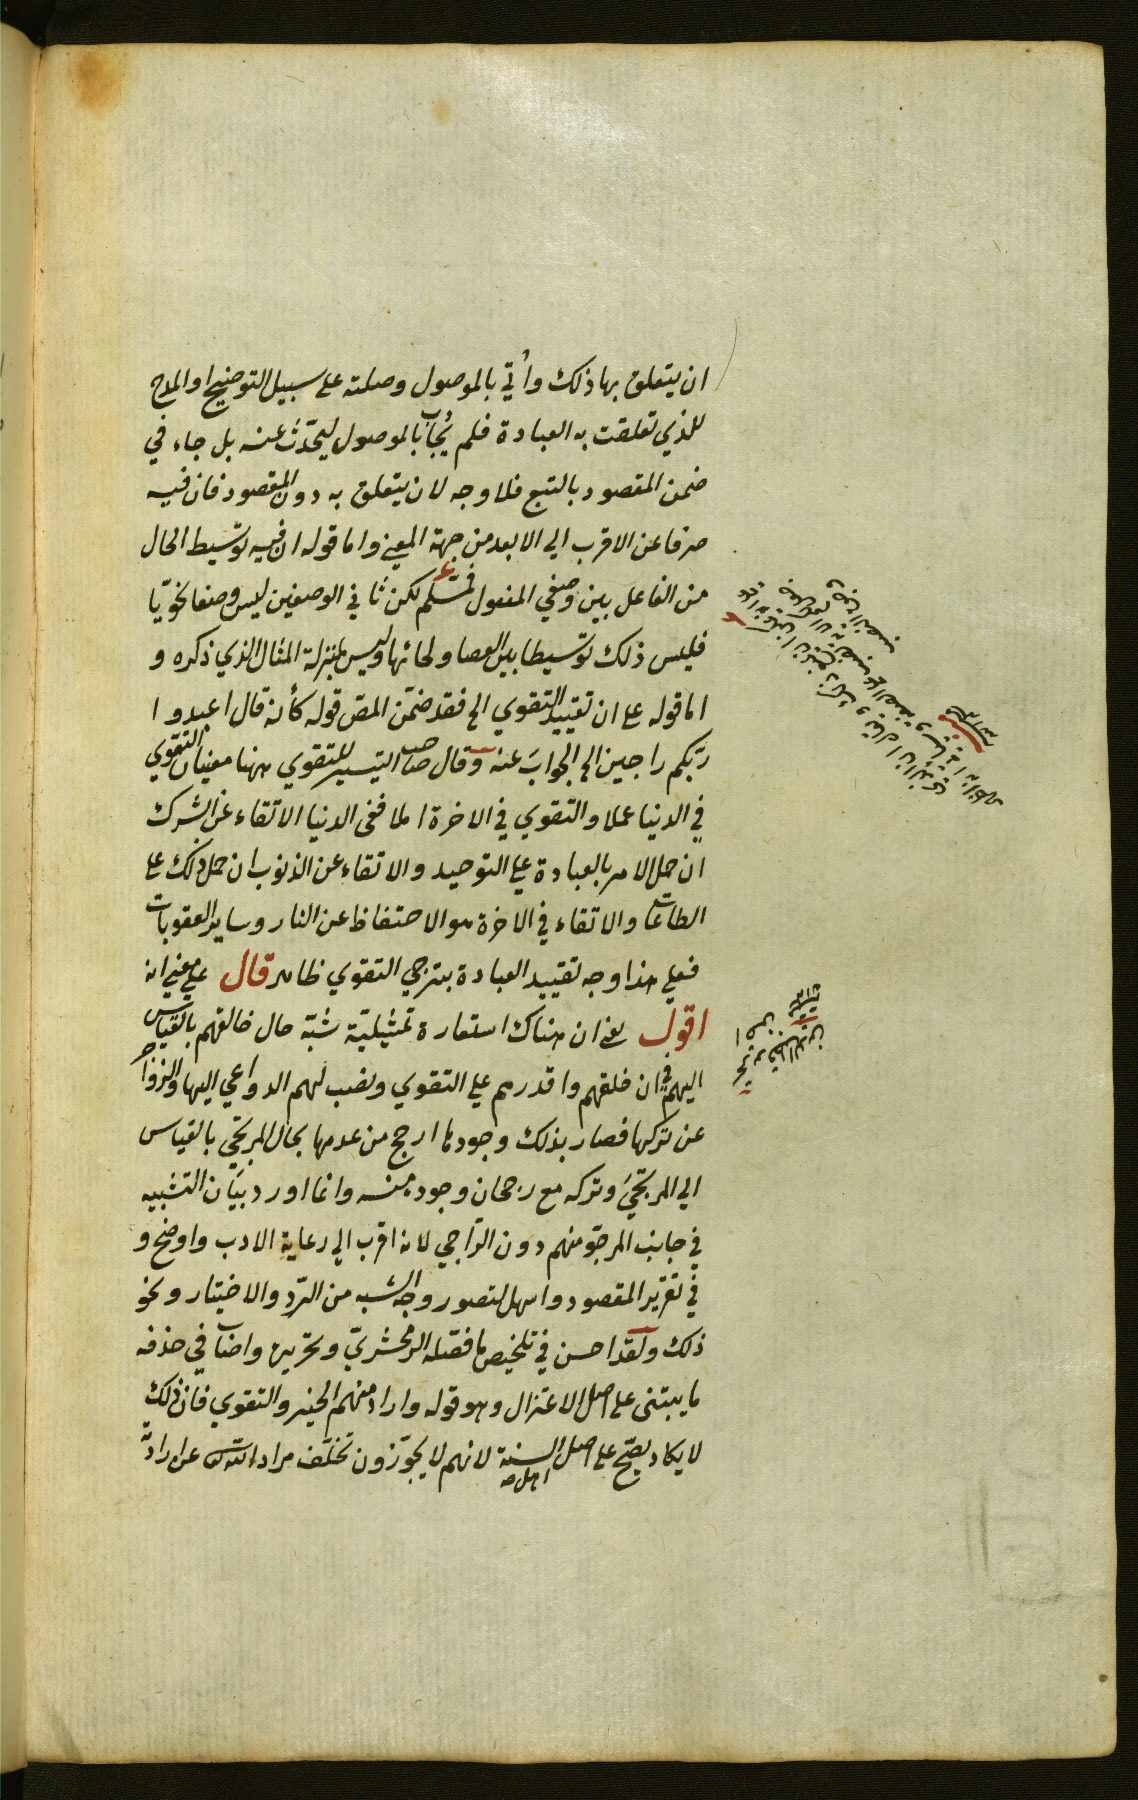 ان يتعلق بها ذلك وأتي بالموصول وصلته على سبيل التوضيح او المدح
للذي تعلقت به العبادة فلم يُجاب بالموصول ليحدّث عنه بل جاء في
ضمن المقصود بالتبع فلا وجه لان يتعلق به دون المقصود فان فيه
صرفا عن الاقرب الى الابعد من جهة المعنى واما قوله ان فيه توسّيط الحال
من الفاعل بين وصفي المفعول فمسّلم لكن ثاني الوصفين ليس وصفا نحويّا
فليس ذلك توسّيطا بين العصا ولحائها وليس بمنزلة المثال الذي ذكره و
اما قوله على ان تقييد التقوي الخ فقد ضمّن المص قوله كأنه قال اعبدوا
ربّكم راجين الخ الجوابَ عنه وقال صاحب التيسير للتقوي ههنا معنيان التقوي
في الدنيا عملا والتقوي في الاخرة املا ففي الدنيا الاتقاء عن الشرك
ان حمل الامر بالعبادة علي التوحيد والاتقاء عن الذنوب ان حمل ذلك على
الطاعات والاتقاء في الاخرة هو الاحتفاظ عن النار وساير العقوبات
فعلى هذا وجه تقييد العبادة بترجي التقوي ظاهر قال علي معني انه
اقول يعني ان هناك استعارة تمثيليّة شبّه حال خالقهم بالقياس
اليهم في ان خلقهم واقدرهم علي التقوي ونصب لهم الدواعي اليها والزواجر
عن تركها فصار بذلك وجودها ارجح من عدمها بحال المرتجّي بالقياس
الي المرتجَّي وتركه مع رجحان وجوده منه وانما اورد بيَان التشبيه
في جانب المرجوّ منهم دون الرّاجي لانه اقرب الي رعاية الادب واوضح و
في تقرير المقصود واسهل لتصور وجه الشبه من التّرد والاختيار ونحو
ذلك ولقد احسن في تلخيص ما فصّله الزمخشريّ وتحريره واصاب في حذفه
ما يبتنى على اصل الاعتزال وهو قوله واراد منهم الخير والتقوي فان ذلك
لا يكاد يصحّ على اصل اهل السنة لانهم لا يجوّزون تخلّف مراد اللّه تعالى عن ارادته